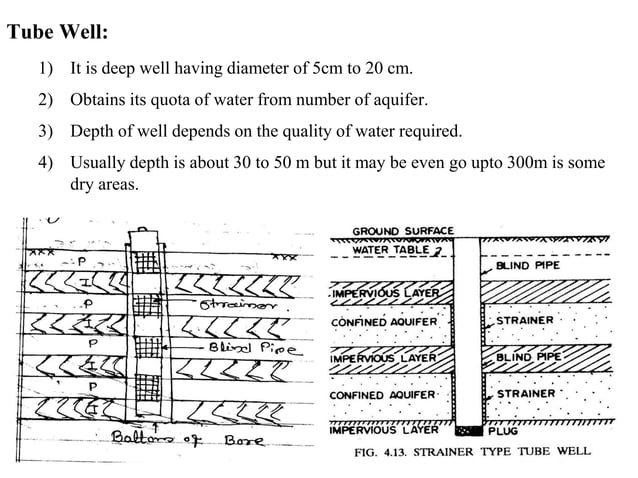 Tube Well:
1) It is deep well having diameter of 5cm to 20 cm.
2) Obtains its quota of water from number of aquifer.
3) Depth of well depends on the quality of water required.
4) Usually depth is about 30 to 50 m but it may be even go upto 300m is some
dry areas.
P
I
P
Strainor
I
P
Blind Pipe
I
P
I
Bottom of Bore
GROUND SURFACE
WATER TABLE
BLIND PIPE
IMPERVIOUS LAYER
CONFINED AQUIFER
STRAINER
IMPERVIOUS LAYER
BLIND PIPE
CONFINED AQUIFER
STRAINER
IMPERVIOUS LAYER
PLUG
FIG. 4.13. STRAINER TYPE TUBE WELL